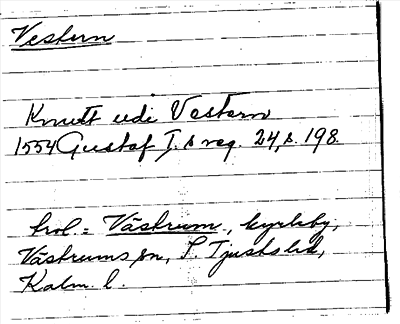 Vestern
Knutt udi Vestern
1554 Gustaf I.s reg. 24, s. 198.
trol = Västrum, kyrkby,
Västrums sn, S. Tjusts hd,
Kalm. l.